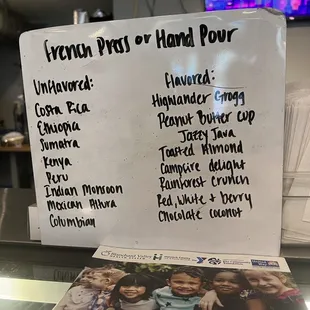 French Press or Hand Pour
Unflavored:
Costa Rica
Ethiopia
Sumatra
Kenya
Peru
Indian Monsoon
Mexican Altura
Columbian
Flavored:
Highlander Grogg
Peanut Butter Cup
Jazzy Java
Toasted Almond
Campfire delight
Rainforest crunch
Red, White + Berry
Chocolate coconut